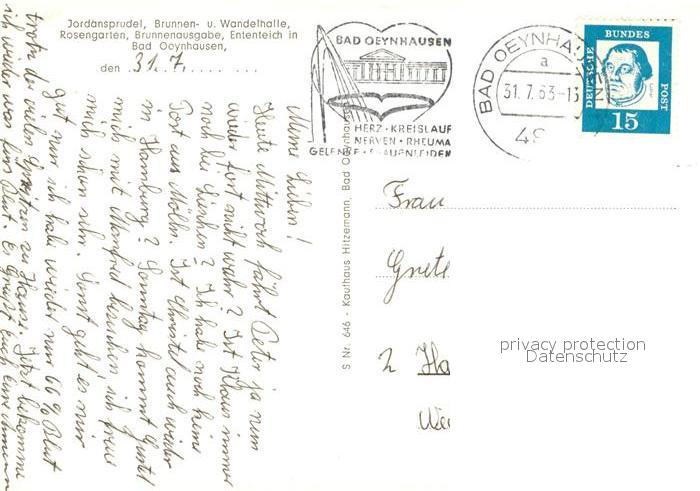 Jordansprudel, Brunnen- u. Wandelhalle,
Rosengarten, Brunnenausgabe, Ententeich in
Bad Oeynhausen,
den 31.7.
Meine Lieben!
Heute Mittwoch fährt Peter ja nun
wieder fort nicht wahr? Ist Klaus immer
noch bei Lieschen? Ich habe noch keine
Post aus Mölln. Ist Christel auch wieder
in Hamburg? Sonntag kommt Gustel
mich mit Manfred besuchen, ich freue
mich schon sehr. Sonst geht es mir
gut nur ich habe wieder nur 66% Blut
trotz der vielen Spritzen zu Hause. Jetzt bekomme
ich wieder was fürs Blut. Es grüßt Euch Eure
S Nr. 646 - Kaufhaus Hitzemann, Bad Oeynhausen
BAD OEYNHAUSEN
HERZ · KREISLAUF
NERVEN · RHEUMA
GELENKE · FRAUENLEIDEN
BAD OEYNHAU
a
31.7.63-13
49
DEUTSCHE BUNDES POST
15
Frau
Grete
2 Ha
privacy protection
Datenschutz